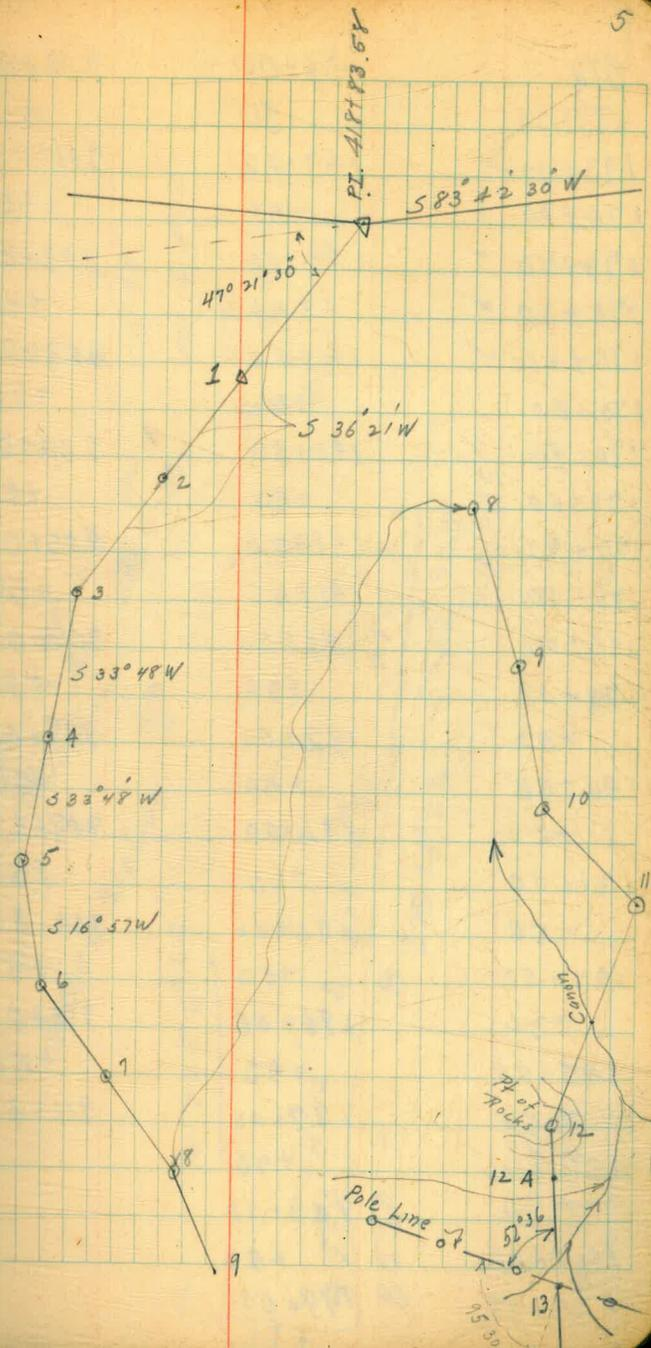 5
P.I. 418+83.58
S 83° 42' 30" W
47° 21' 30"
1
S 36° 21' W
2
8
3
9
S 33° 48 W
4
10
S 33° 48' W
5
11
S 16° 57 W
6
Canon
7
Pt of
Rocks
12
8
12 A
Pole Line
52° 36
9
13
95 30